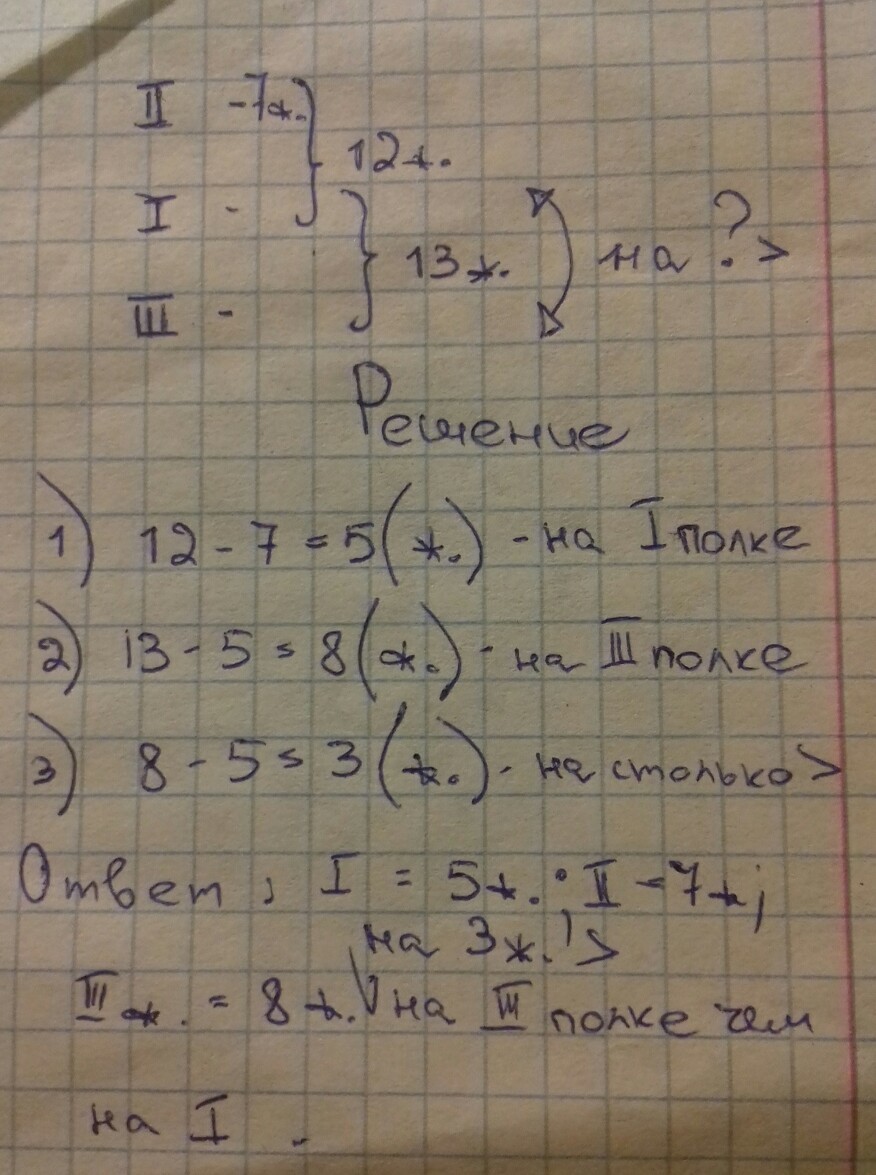 II - 7ж.
12ж.
I -
13ж. на ? >
III -
Решение
1) 12 - 7 = 5 (ж.) - на I полке
2) 13 - 5 = 8 (ж.) - на III полке
3) 8 - 5 = 3 (ж.) - на столько >
Ответ, I = 5ж.; II - 7ж;
на 3ж. >
III ж. = 8ж. на III полке чем
на I .